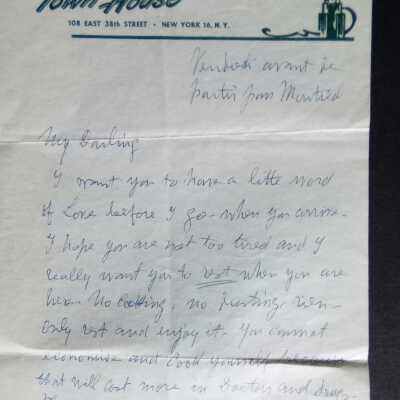 Town House
108 EAST 38th STREET • NEW YORK 16, N.Y.
Vendredi avant de
partir pour Montréal
My Darling
I want you to have a little word
of Love before I go - when you arrive -
I hope you are not too tired and I
really want you to rest when you are
here. No cooking, no dusting, rien -
Only rest and enjoy it - You cannot
economise and cook yourself because
that will cost more in Doctors and